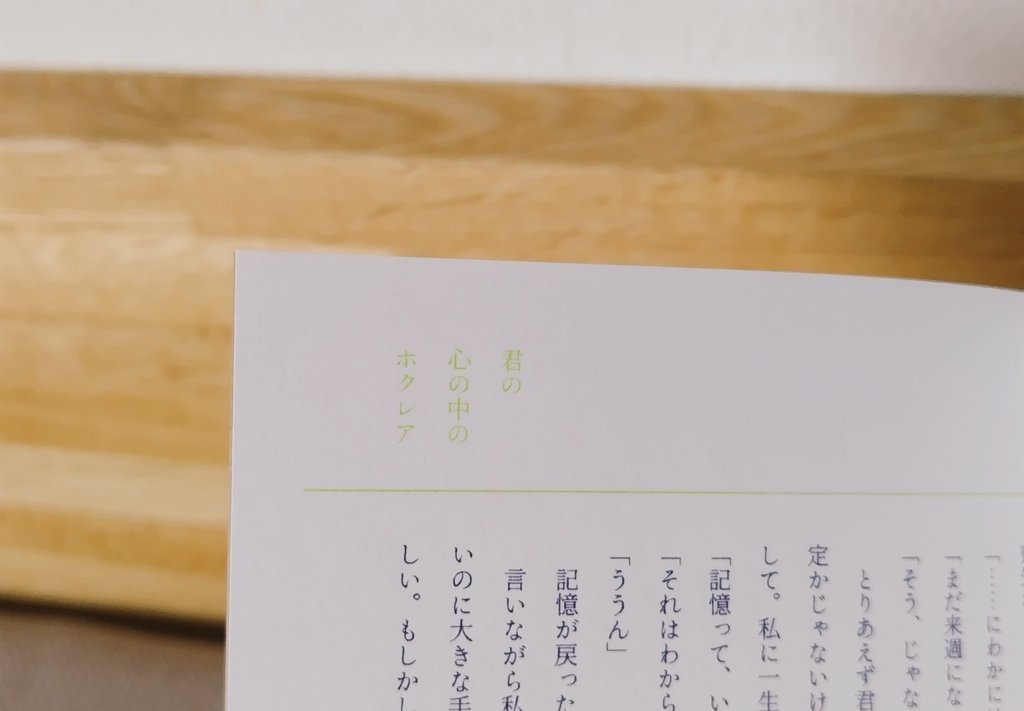 君の
心の中の
ホクレア
「……にわかに
「まだ来週にな
「そう、じゃな
とりあえず君
定かじゃないけ
して。私に一生
「記憶って、い
「それはわから
「ううん」
記憶が戻った
言いながら私
いのに大きな手
しい。もしかし